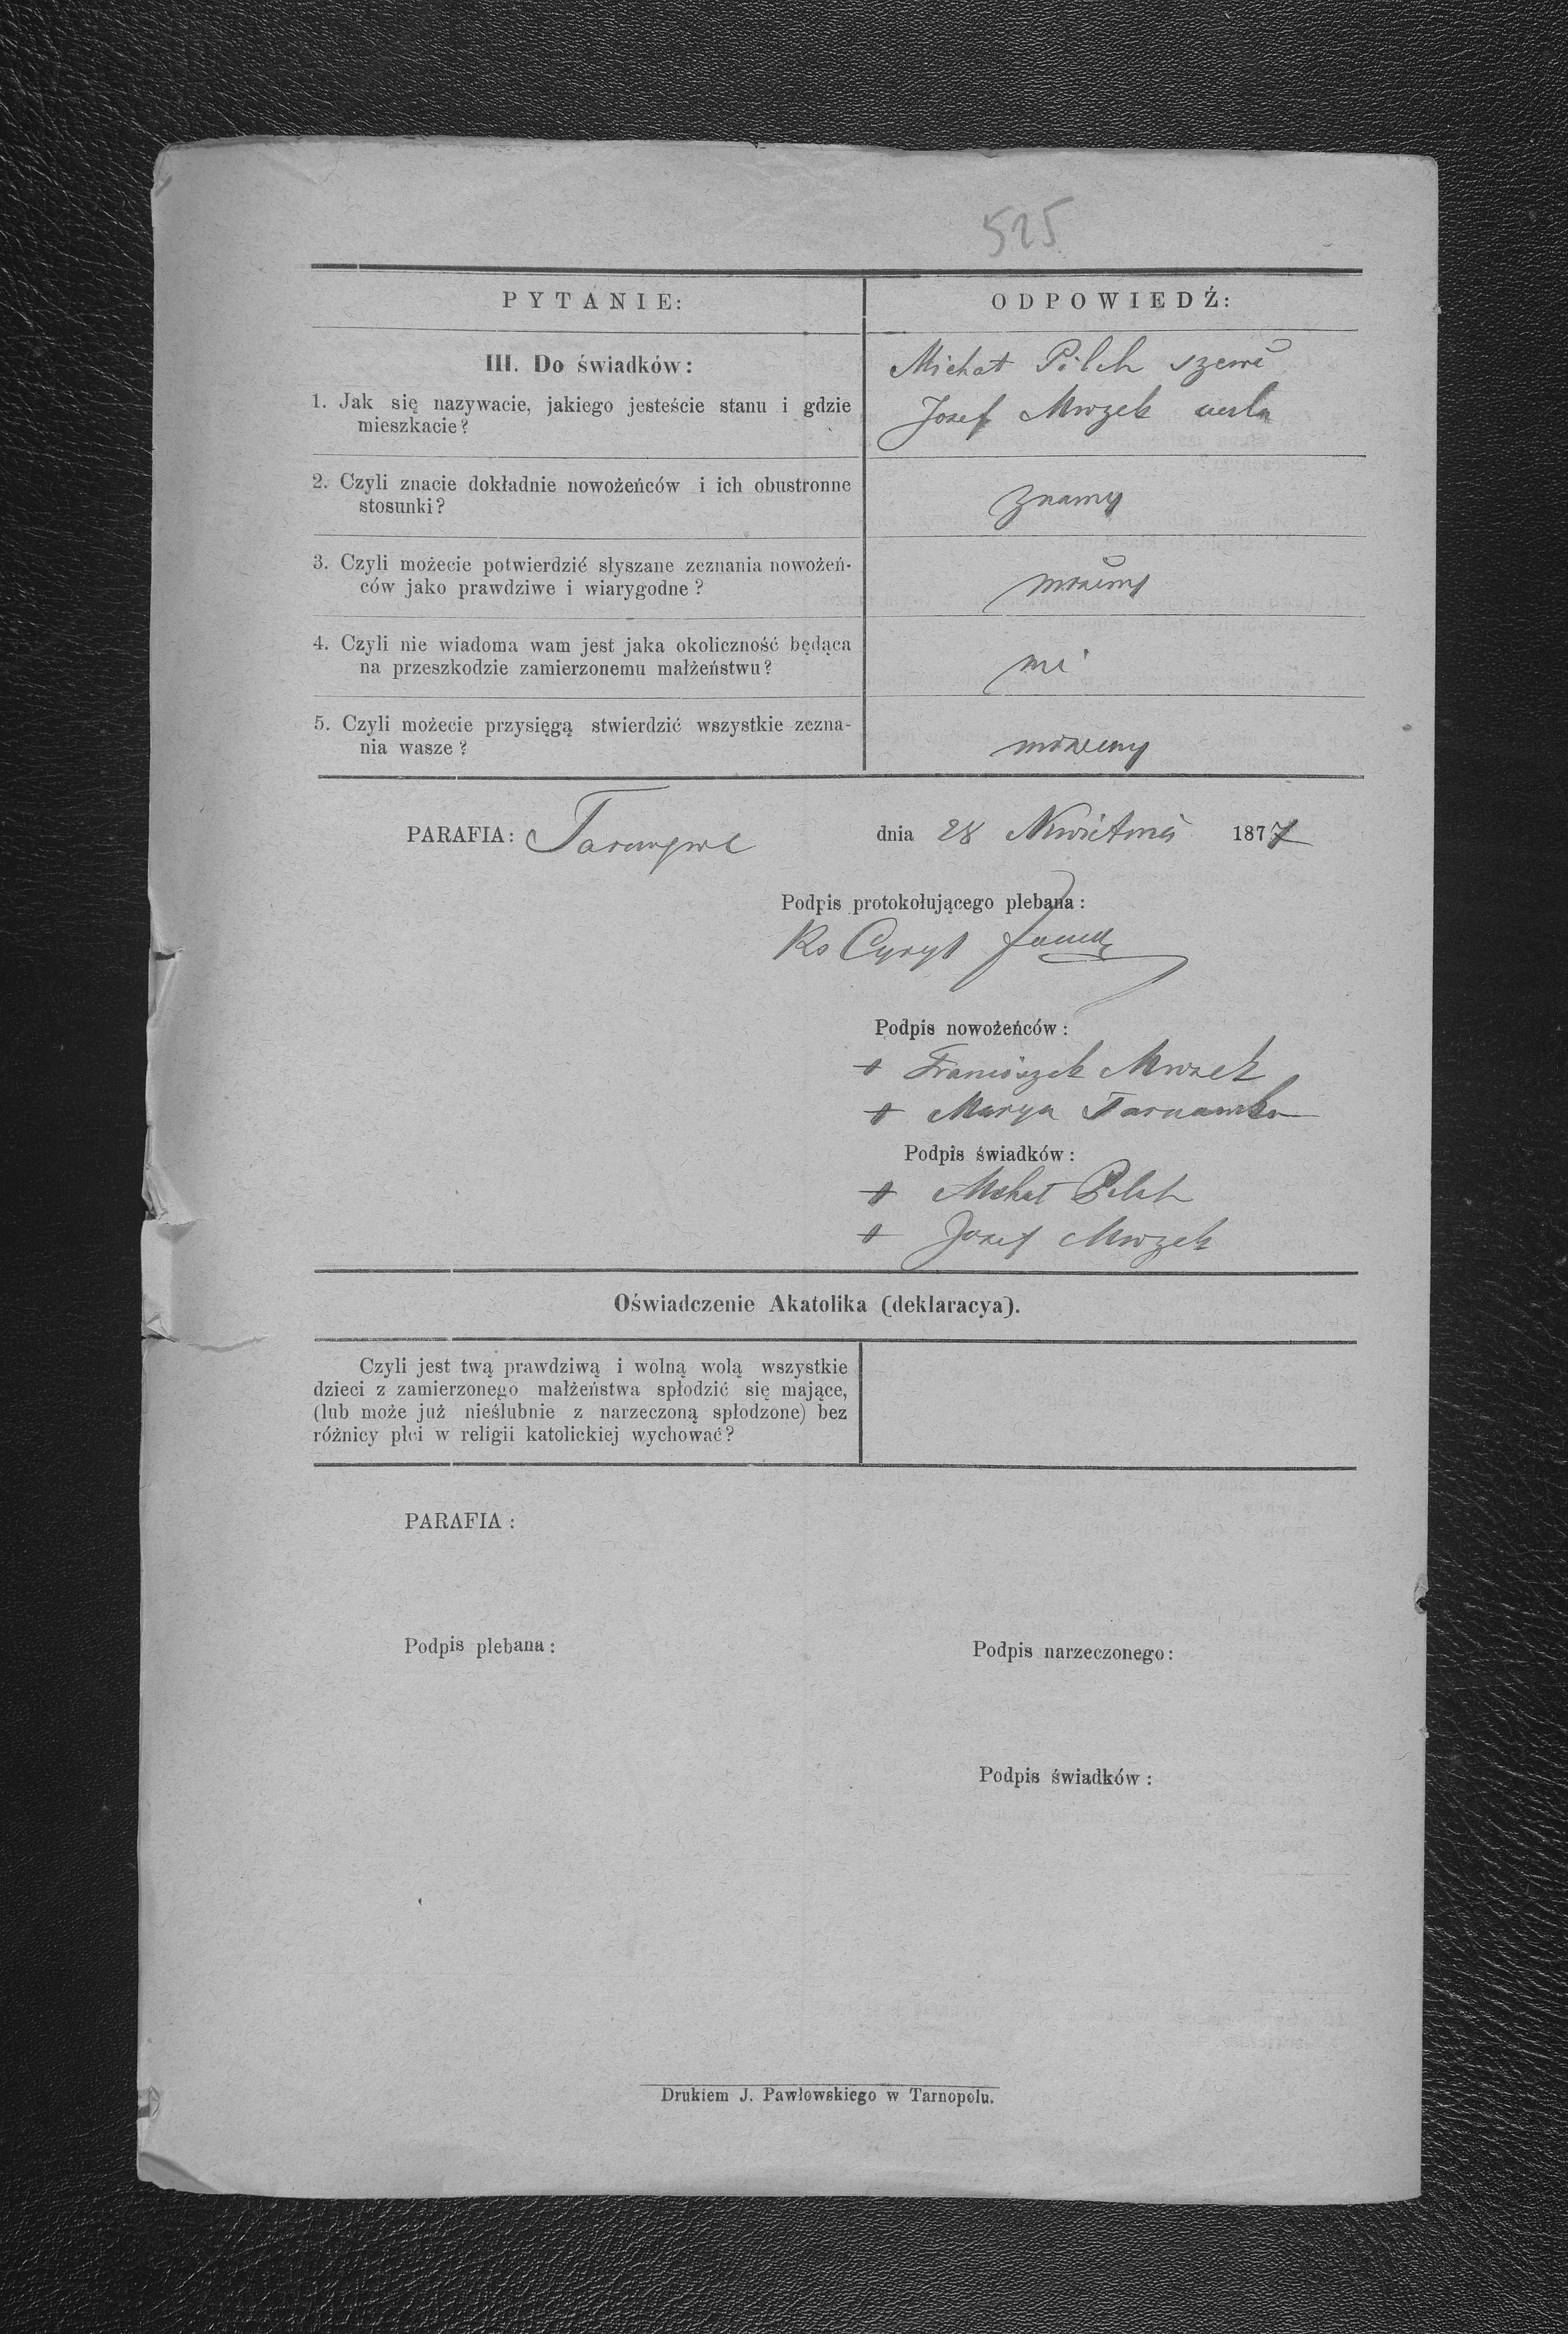 525
PYTANIE:
ODPOWIEDŹ:
III. Do świadków:
1. Jak się nazywacie, jakiego jesteście stanu i gdzie
mieszkacie?
Michał Pilch szewc
Josef Mrozek
2. Czyli znacie dokładnie nowożeńców i ich obustronne
stosunki?
znamy
3. Czyli możecie potwierdzić słyszane zeznania nowożeń-
ców jako prawdziwe i wiarygodne?
możemy
4. Czyli nie wiadoma wam jest jaka okoliczność będąca
na przeszkodzie zamierzonemu małżeństwu?
nie
5. Czyli możecie przysięgą stwierdzić wszystkie zezna-
nia wasze?
możemy
PARAFIA:
dnia 28 Kwietnia 1877
Podpis protokołującego plebana:
Ks Cyryl
Podpis nowożeńców:
+ Franciszek Mrozek
+ Marya Tarnawska
Podpis świadków:
+ Michał Pilch
+ Josef Mrozek
Oświadczenie Akatolika (deklaracya).
Czyli jest twą prawdziwą i wolną wolą wszystkie
dzieci z zamierzonego małżeństwa spłodzić się mające,
(lub może już nieślubnie z narzeczoną spłodzone) bez
różnicy płci w religii katolickiej wychować?
PARAFIA:
Podpis plebana:
Podpis narzeczonego:
Podpis świadków:
Drukiem J. Pawłowskiego w Tarnopolu.